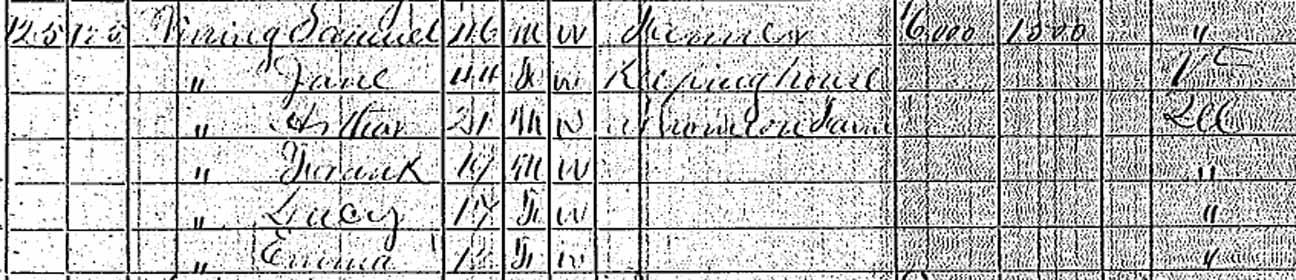 125 125 Vining Samuel 46 M W Farmer 6000 1500 "
" Jane 44 F W Keeping house Vt
" Arthur 21 M W Ill
" Frank 19 M W "
" Lucy 17 F W "
" Emma 12 F W "